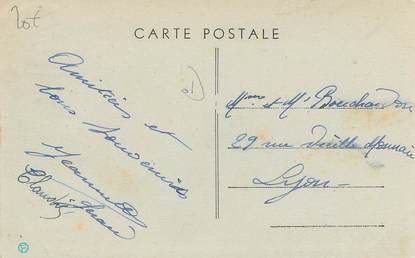 lot
CARTE POSTALE
Amitiés et
bons souvenirs
Jeannette
Claudia
Mme et Mr Bouchardon
29 rue Vieille Monnaie
Lyon